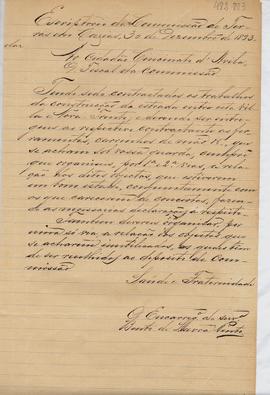 483 223
Escriptorio da Commissão de Ter-
ras dos Cazaes, 30 de Dezembro de 1893.
Ao Cidadão
Fiscal da Commissão
Tendo sido contractados os trabalhos
da construcção da estrada entre esta Vil-
la e e devendo ser entre-
gues ao respectivo contractante as fer-
ramentas, carrinhos de mão &,, que
se acham sob vossa guarda,
que organiseis, por 1ª e 2ª vias, a rela-
ção dos ditos objectos, que estiverem
em bom estado, conjunctamente com
os que carecerem de concertos, fazen-
do as necessarias declarações a respeito.
Tambem devereis organisar, por
uma só via a relação dos objectos que
se acharem inutilisados, os quaes tem
de ser recolhidos ao deposito da Com-
missão
Saude e Fraternidade
O Encarreg. do serv.
Bento de Barros Pinto